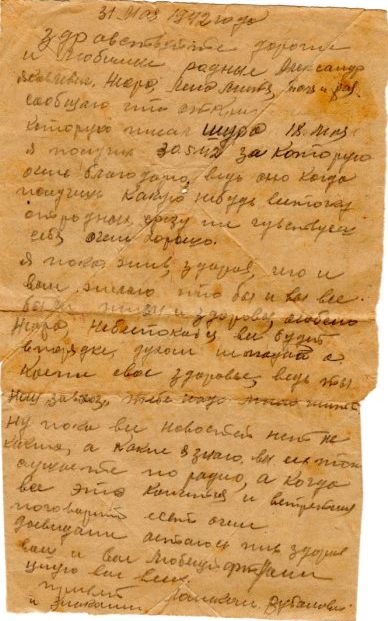 31 Мая 1942 года
Здравствуйте дорогие
и любимые родные Александр
Жора, Лена
сообщаю что открытку
которую писал Шура 18 Мая
я получил 30.5.42 за которую
очень благодарю, ведь оно когда
получишь какую нибудь весточку
от родных сразу чувствуешь
себя очень хорошо.
я пока жив, здоров, чего и
вам желаю что бы и вы все
были живы и здоровы, особено
Жора, небеспокойся все будет
в порядке, духом не падай а
крепи свое здоровье, ведь ты
наш завхоз, тебе надо много
ну пока все новостей нет не
каких, а какие я знаю вы их тож
слушаете по радио, а когда
все это кончится и встретимся
поговорить есть очем
досвидания остаюсь жив здоров
ваш и вас любящий
цилую вас всех.
привет
и знакомым